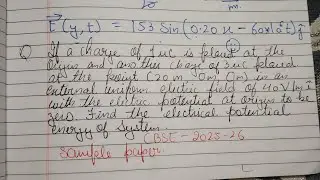 m.
E(y,t) = 153 Sin(0.20 x - 60x10⁸t) ĵ
Q If a charge of 1uc is placed at the
Origin and another charge of 3uc placed
at the point (20m, 0m, 0m) in an
external uniform electric field of 40 V/m î
with the electric potential at origin to be
zero. Find the electrical potential
energy of System.
CBSE - 2025-26
Sample paper.